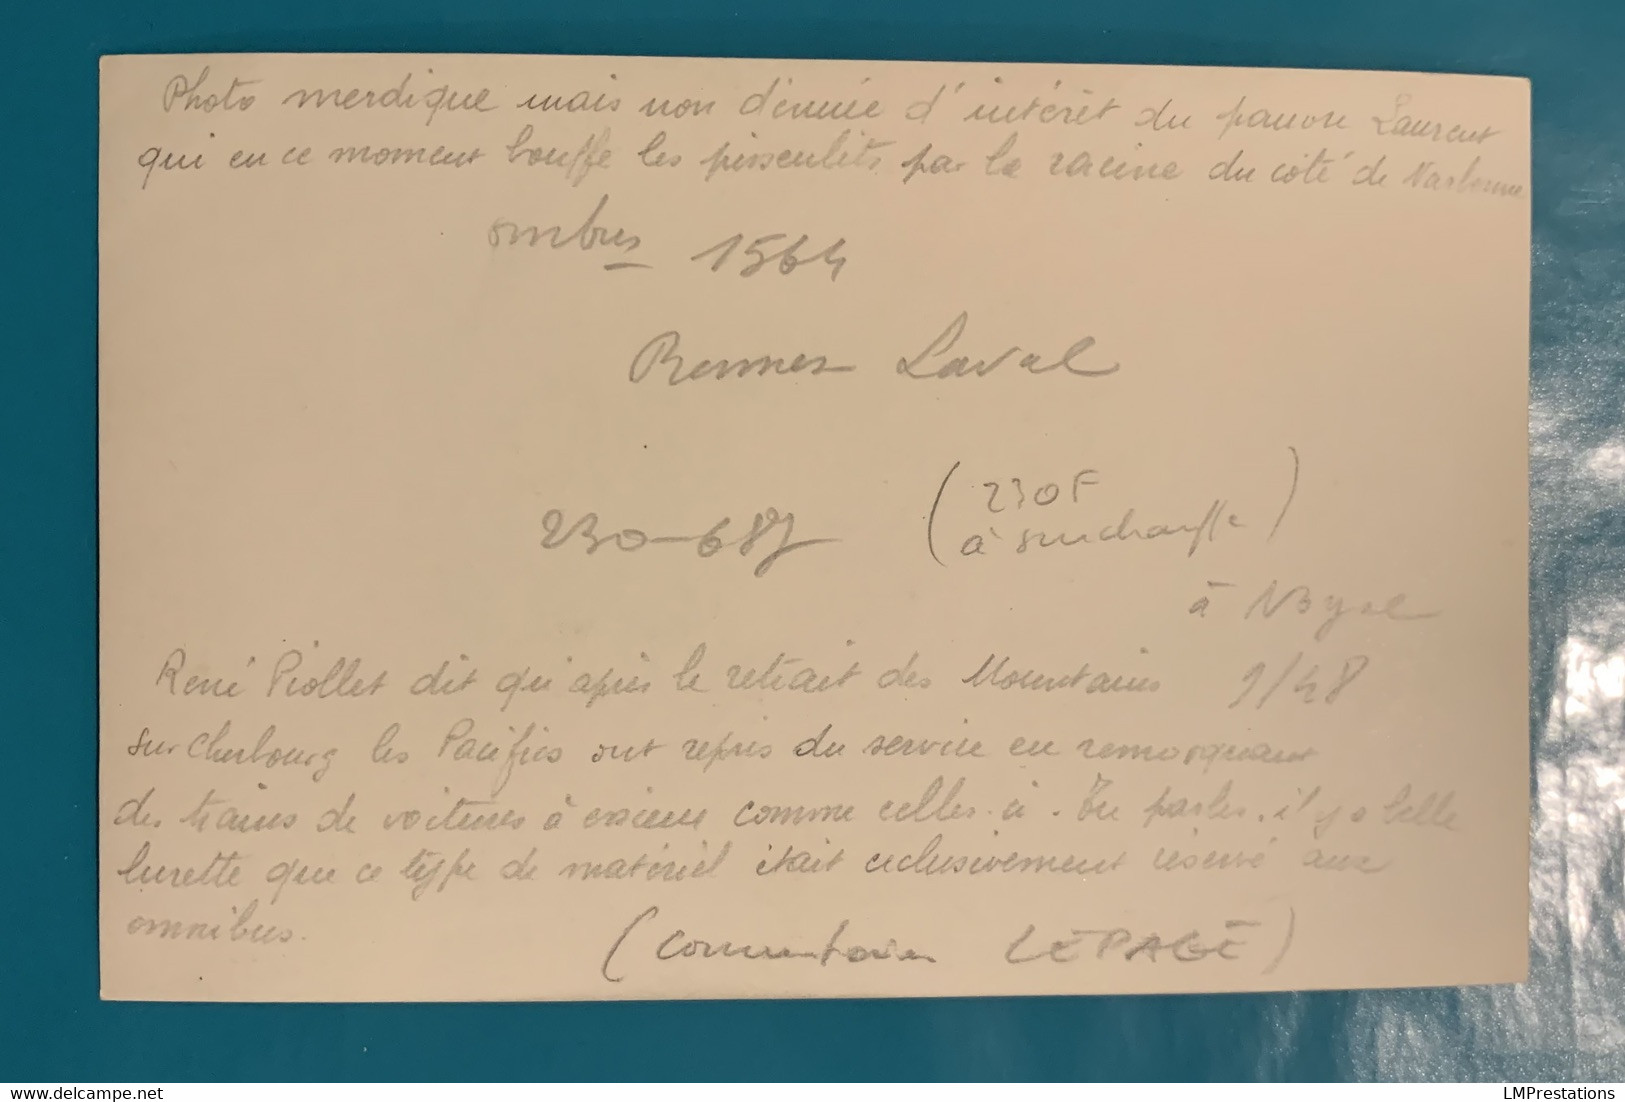 Photo merdique mais non dénuée d'intérêt du pauvre Laurent
qui en ce moment bouffe les pissenlits par la racine du côté de Narbonne
omnibus 1564
Rennes Laval
230-687
(230F
à surchauffe)
à
René Piollet dit qu'après le retrait des Mountains 9/48
sur Cherbourg les Pacifics ont repris du service en remorquant
des trains de voitures à essieux comme celles-ci. Tu parles, il y a belle
lurette que ce type de matériel était exclusivement réservé aux
omnibus.
(Commentaires LEPAGE)
LMPrestations